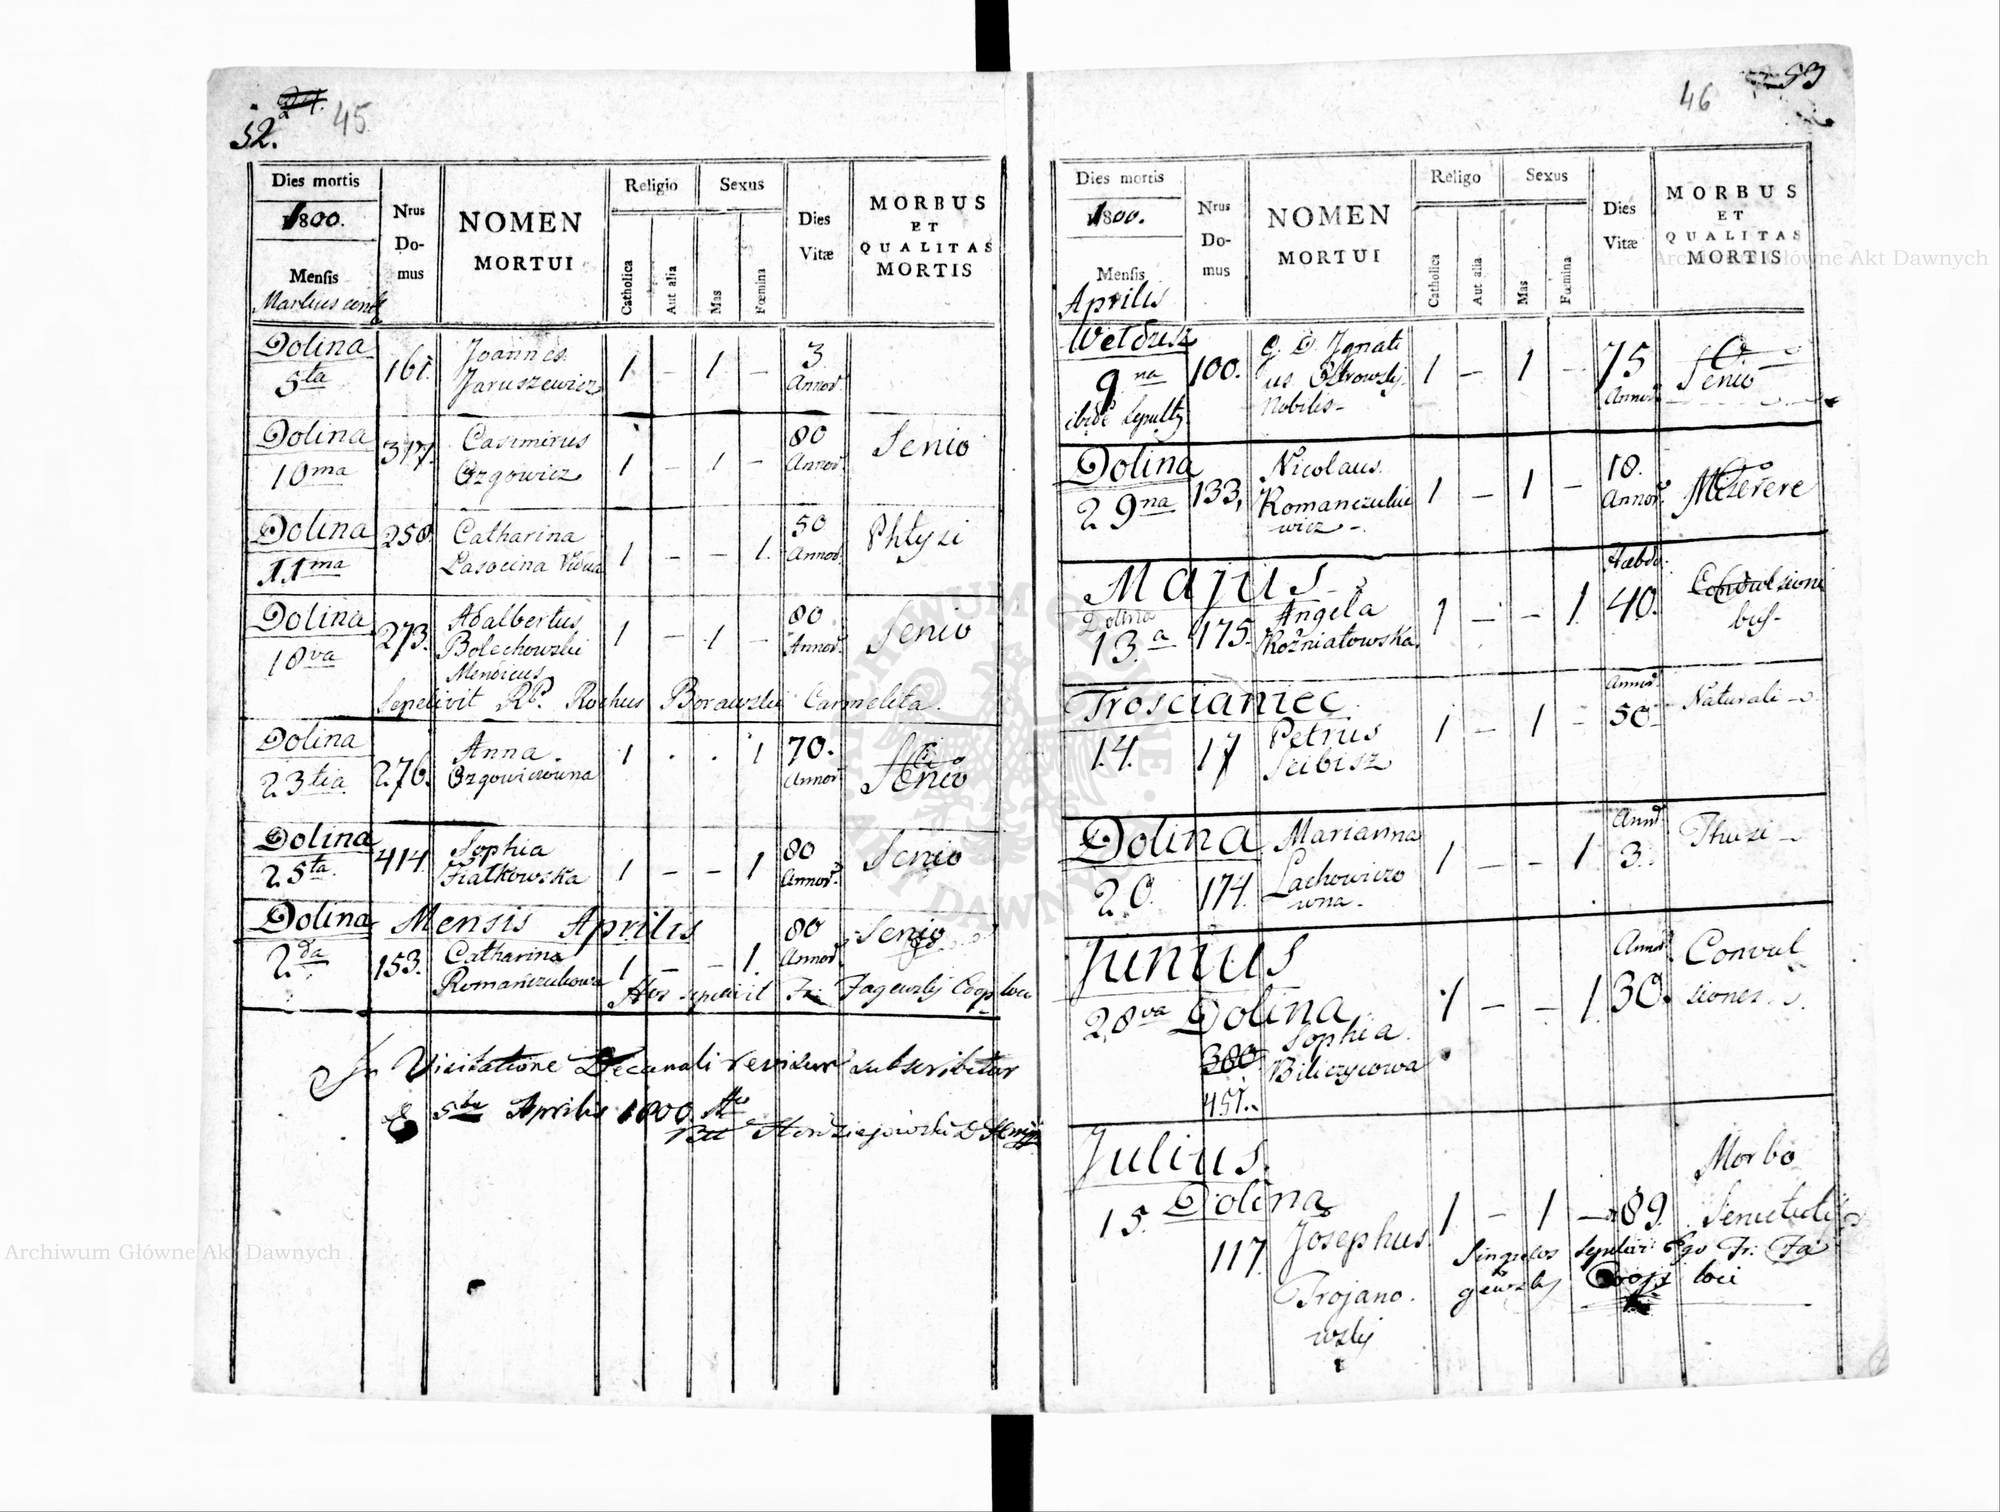 52.
45
Dies mortis
1800.
Mensis
Martius
Nrus
Do-
mus
NOMEN
MORTUI
Religio
Catholica
Aut alia
Sexus
Mas
Fœmina
Dies
Vitæ
MORBUS
ET
QUALITAS
MORTIS
Dolina
5ta
161.
Joannes
Jaruszewicz
1 – 1 –
3
Annor.
Dolina
10ma
317.
Casimirus
Ozgowicz
1 – 1 –
80
Annor.
Senio
Dolina
11ma
250.
Catharina
Lasocina Vidua
1 – – 1.
50
Annor.
Phtysi
Dolina
18va
273.
Adalbertus
Bolechowski
Mendicus
1 – 1 –
80
Annor.
Senio
Sepelivit RP. Rochus Borawski Carmelita.
Dolina
23tia
276.
Anna
Ozgowiczowna
1 . . 1
70.
Annor.
Senio
Dolina
25ta.
414.
Sophia
Fiatkowska
1 – – 1
80
Annor.
Senio
Dolina
Mensis Aprilis
2da
153.
Catharina
Romanczukowa
1 – – 1.
80
Annor.
Senio
Hos sepelivit Fr: Fagewskj Coop loci
In Visitatione Decanali revisum subscribitur
5ta Aprilis 1800.
46
53
Dies mortis
1800.
Mensis
Aprilis
Nrus
Do-
mus
NOMEN
MORTUI
Religo
Catholica
Aut alia
Sexus
Mas
Fœmina
Dies
Vitæ
MORBUS
ET
QUALITAS
MORTIS
Weldzisz
9na
100.
G. D. Ignati
us Ostrowskj
Nobilis –
1 – 1 –
75
Annor.
Senio
Dolina
29na
133.
Nicolaus
Romanczukie
wicz –
1 – 1 –
18.
Annor.
Mizerere
Majus
Dolina
13.a
175.
Angela
Rożniatowska
1 – – 1.
Hebdo:
40.
Convulsioni
bus –
Troscianiec
14.
17
Petrus
Seibisz
1 – 1 –
Annor.
50
Naturali
Dolina
20.
174.
Marianna
Lachowiczo
wna –
1 – – 1.
Annor
3.
Thusi
Junius
28va Dolina
380
451.
Sophia
Biliczycowa
1 – – 1.
Annor.
30.
Convul
siones
Julius
Dolina
15.
117.
Josephus
Trojano.
wskj
1 – 1 –
89.
Morbo
Senectuti
Singulos sepelivi Ego Fr: Fa
gewskj Coop loci
Archiwum Główne Akt Dawnych
Archiwum Główne Akt Dawnych
ARCHIWUM GŁÓWNE AKT DAWNYCH